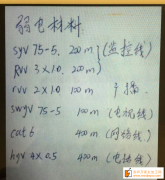 弱电材料
syv 75-5. 200m (监控线)
Rvv 3×1.0. 200m
rvv 2×1.0 100m
swyv 75-5 100m (电视线)
cat 6 400m (网络线)
hyv 4×0.5 400m (电话线)